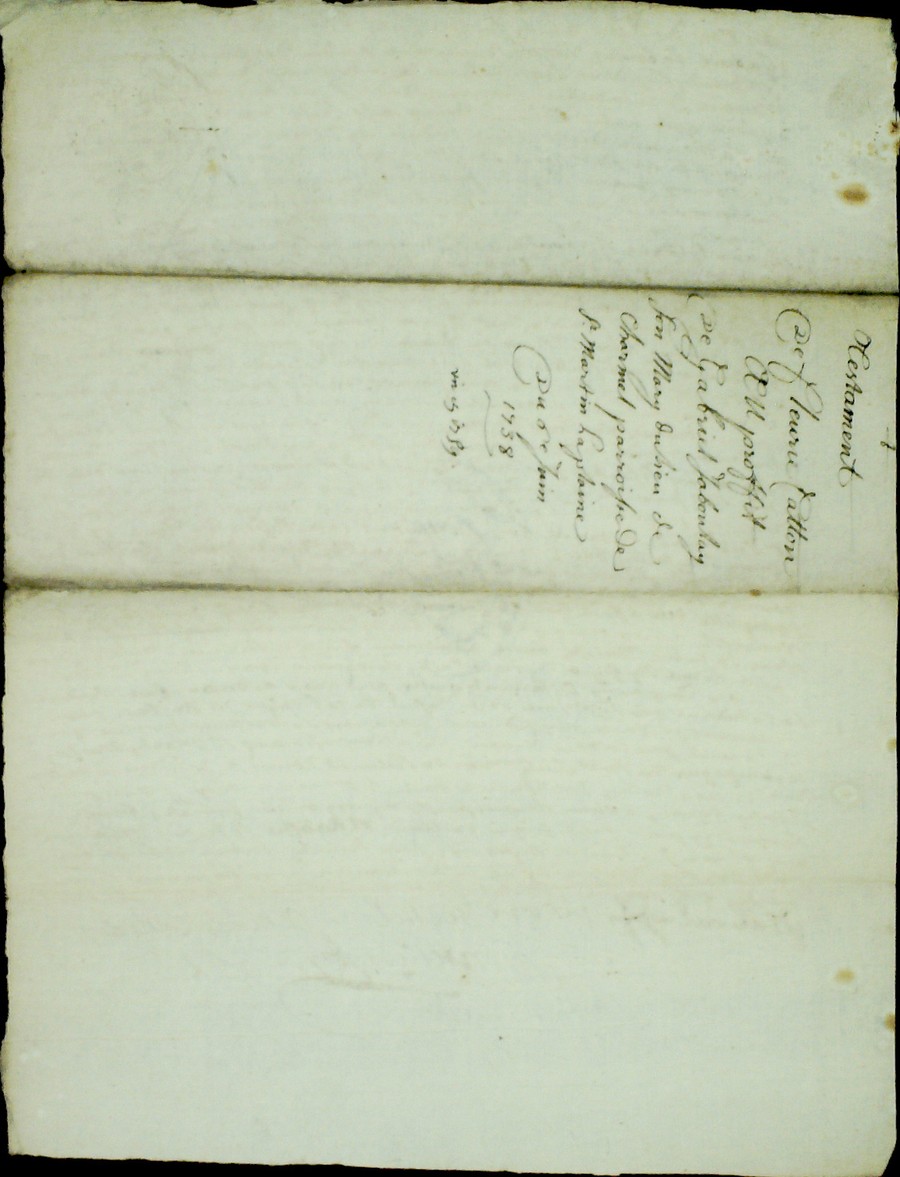 Testament
De fleurie Catton
Au proffit
De Gabriel
son Mary du lieu de
Charmet parroisse de
St. Martin La plaine
Du 6e Juin
1738